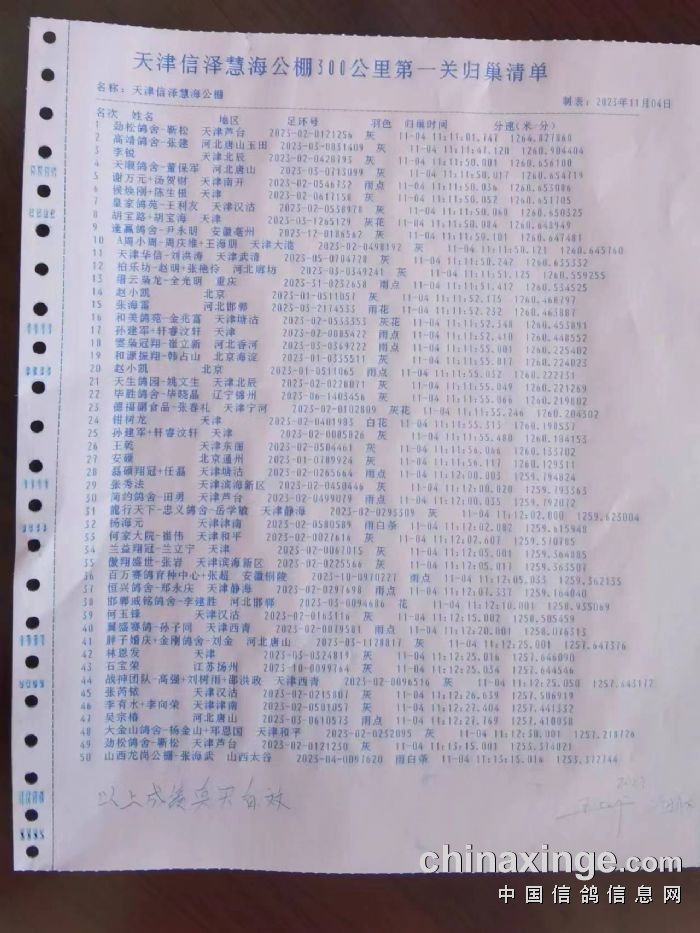 天津信泽慧海公棚300公里第一关归巢清单
名称: 天津信泽慧海公棚 制表: 2023年11月04日
名次 姓名 地区 足环号 羽色 归巢时间 分速(米/分)
1 劲松鸽舍-靳松 天津芦台 2023-02-0121256 灰 11-04 11:11:01.747
2 高靖鸽舍-张建 河北唐山玉田 2023-03-0831409 灰 11-04 11:11:47.120 1260.904404
3 李锐 天津北辰 2023-02-0420793 灰 11-04 11:11:50.001 1260.656100
4 天顺鸽舍-董保军 河北唐山 2023-03-0713099 灰 11-04 11:11:50.017 1260.654719
5 谢万元+汤贺财 天津南开 2023-02-0546732 雨点 11-04 11:11:50.036 1260.653086
6 侯焕刚+陈生银 天津 2023-02-0617158 灰 11-04 11:11:50.052 1260.651705
7 皇家鸽苑-王利友 天津汉沽 2023-02-0538978 灰 11-04 11:11:50.068 1260.650325
8 胡宝路+胡宝海 天津 2023-03-1265129 灰花 11-04 11:11:50.084 1260.648945
9 逢赢鸽舍-尹永明 安徽亳州 2023-12-0186562 灰 11-04 11:11:50.101 1260.647481
10 A周小周-周庆维+王海朋 天津大港 2023-02-0498192 灰 11-04 11:11:50.121 1260.645760
11 天津华信-刘洪涛 天津武清 2023-05-0704728 灰 11-04 11:11:50.247
12 柏乐坊-赵明+张艳伶 河北廊坊 2023-03-0349241 灰 11-04 11:11:51.125 1260.559255
13 缙云枭龙-全光明 重庆 2023-31-0232658 雨点 11-04 11:11:51.412
14 赵小凯 北京 2023-01-0511057 灰 11-04 11:11:52.175 1260.468797
15 张海雷 河北邯郸 2023-03-2174533 雨花 11-04 11:11:52.232 1260.463887
16 和美鸽苑-金兆富 天津塘沽 2023-02-0533353 灰花 11-04 11:11:52.348 1260.453891
17 孙建军+轩睿汶轩 天津 2023-02-0085422 雨点
18 雲枭冠翔-崔立新 河北香河 2023-03-0369222 雨点
19 和源振翔-韩占山 北京海淀 2023-01-0335511 灰 1260.224023
20 赵小凯 北京 2023-01-0511065 雨点 1260.222231
21 天生鸽园-姚文生 天津北辰 2023-02-0228071 灰 11-04 11:11:55.049 1260.221269
22 毕胜鸽舍-毕晓晶 辽宁锦州 2023-06-1403456 灰 11-04 11:11:55.066
23 德福副食品-张春礼 天津宁河 2023-02-0102809 灰花 11-04 11:11:55.246 1260.204302
24 钳树龙 天津 2023-02-0401983 白花 11-04 11:11:55.313 1260.198537
25 孙建军+轩睿汶轩 天津 2023-02-0085826 灰 11-04 11:11:55.480 1260.184153
26 王乾 天津东丽 2023-02-0504461 灰 11-04 11:11:56.066 1260.133702
27 安硕 北京通州 2023-01-0789924 灰 11-04 11:11:56.117 1260.129311
28 磊硕翔冠+任磊 天津塘沽 2023-02-0265664 雨点 11-04 11:12:00.003 1259.794824
29 张秀法 天津滨海新区 2023-02-0450446 灰 11-04 11:12:00.020 1259.793363
30 简约鸽舍-田勇 天津芦台 2023-02-0499079 雨点 11-04 11:12:00.035 1259.792072
31 龍行天下-忠义鸽舍-岳学敏 天津静海 2023-02-0293309 灰 11-04 11:12:02.000 1259.623004
32 杨海元 天津津南 2023-02-0580589 雨白条 11-04 11:12:02.082 1259.615948
33 何家大院-崔伟 天津和平 2023-02-0027616 灰 11-04 11:12:02.607 1259.570785
34 兰益翔冠-兰立宁 天津 2023-02-0067015 灰 11-04 11:12:05.001 1259.364885
35 傲翔盛世-张岩 天津滨海新区 2023-02-0225566 灰 11-04 11:12:05.014
36 百万赛鸽育种中心+张超 安徽桐陵 2023-10-0970227 雨点 11-04 11:12:05.033 1259.362135
37 恒兴鸽舍-郑永庆 天津静海 2023-02-0297698 雨点 11-04 11:12:07.337 1259.164040
38 邯郸威铭鸽舍-李建胜 河北邯郸 2023-03-0094686 花 11-04 11:12:10.001 1258.935069
39 何玉锋 天津汉沽 2023-02-0163116 灰 11-04 11:12:15.002 1258.505459
40 翼盛赛鸽-孙子同 天津西青 2023-02-0079581 雨点 11-04 11:12:20.001 1258.076313
41 胖子婚庆+金刚鸽舍-刘金 河北唐山 2023-03-1128817 灰 11-04 11:12:25.001 1257.647376
42 林恩发 天津 2023-03-0324819 灰 11-04 11:12:25.016 1257.646090
43 石宝荣 江苏扬州 2023-10-0099764 灰 11-04 11:12:25.034 1257.644546
44 战神团队-高强+刘树雨+邵洪政 天津西青 2023-02-0096516 灰 11-04 11:12:25.050 1257.643172
45 张芮铱 天津汉沽 2023-02-0215807 灰 11-04 11:12:26.639 1257.506919
46 李有水+李向荣 天津津南 2023-02-0501057 灰 11-04 11:12:27.404 1257.441332
47 吴宗椿 河北唐山 2023-03-0610573 雨点 11-04 11:12:27.769 1257.410038
48 大金山鸽舍-杨金山+邓恩国 天津和平 2023-02-0232095 灰 11-04 11:12:30.001 1257.218726
49 劲松鸽舍-靳松 天津芦台 2023-02-0121230 灰 11-04 11:13:15.001 1253.374021
50 山西龙岗公棚-张海武 山西太谷 2023-04-0097620 雨白条 11-04 11:13:15.016 1253.372744
以上成绩真实有效
chinaxinge.com
中国信鸽信息网